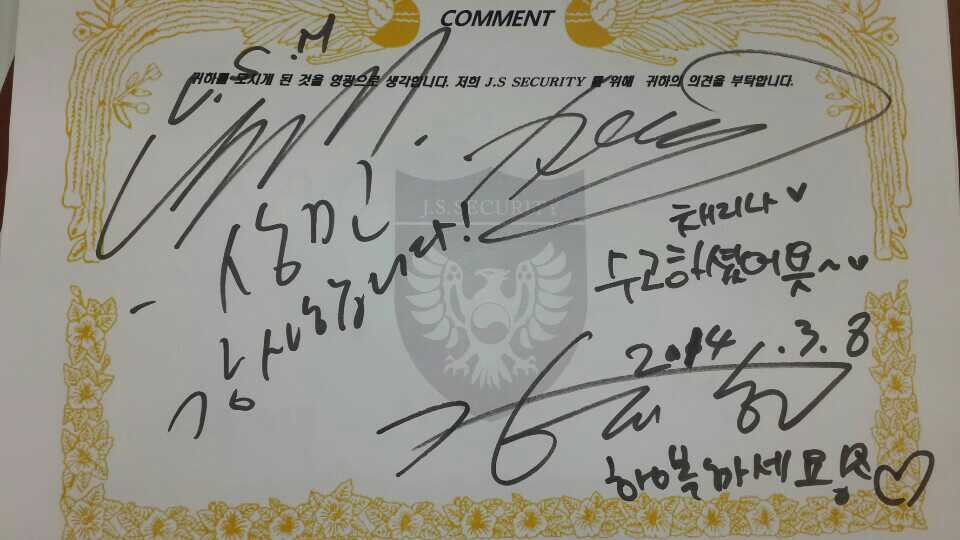 COMMENT
귀하를 모시게 된 것을 영광으로 생각합니다. 저희 J.S SECURITY 를 위해 귀하의 의견을 부탁합니다.
상민
J.S. SECURITY
채리나♥
수고하셨어욧~♥
2014.3.8
행복하세요용♡